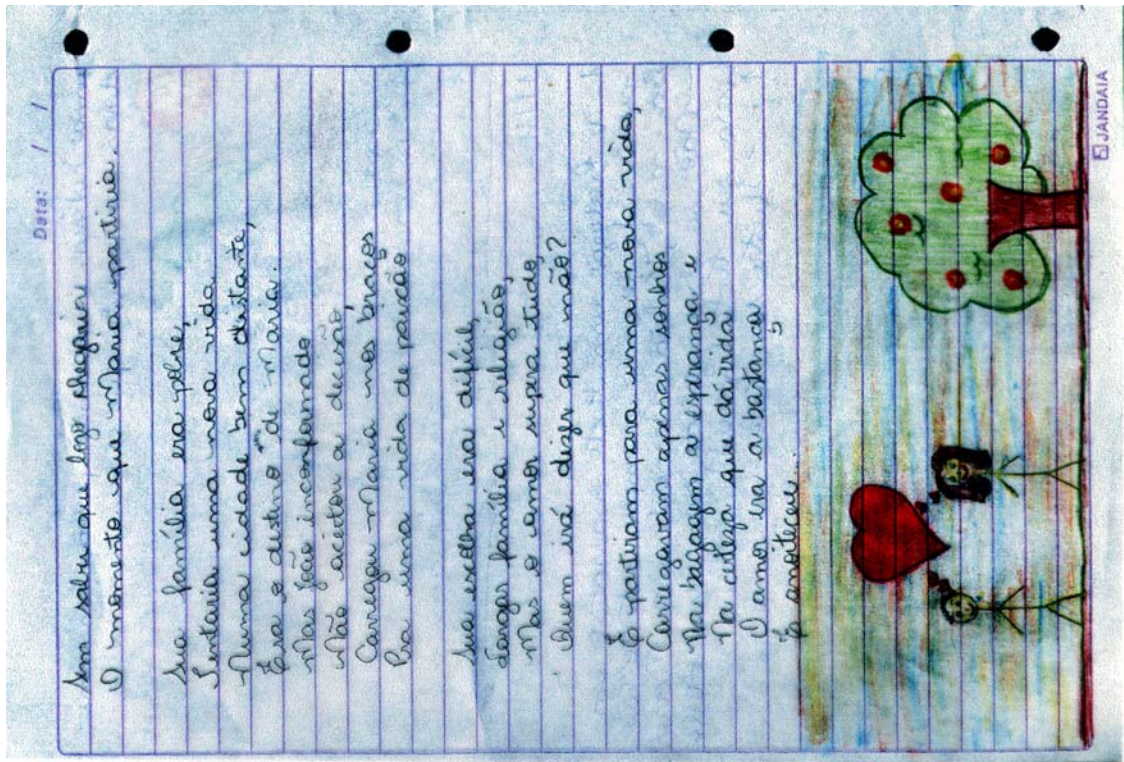 Data: / /
Sem saber que logo chegaria
O momento que Maria partiria.
Sua família era pobre,
Tentaria uma nova vida
Numa cidade bem distante,
Era o destino de Maria.
Mas João inconformado
Não aceitou a decisão,
Carregou Maria nos braços
Pra uma vida de paixão
Sua escolha era difícil,
Largar família e religião,
Mas o amor supera tudo,
Quem irá dizer que não?
E partiram para uma nova vida,
Carregavam apenas sonhos
Na bagagem a esperança e
Na certeza que dá vida
O amor ira a bastança
E anoitecer...
JANDAIA